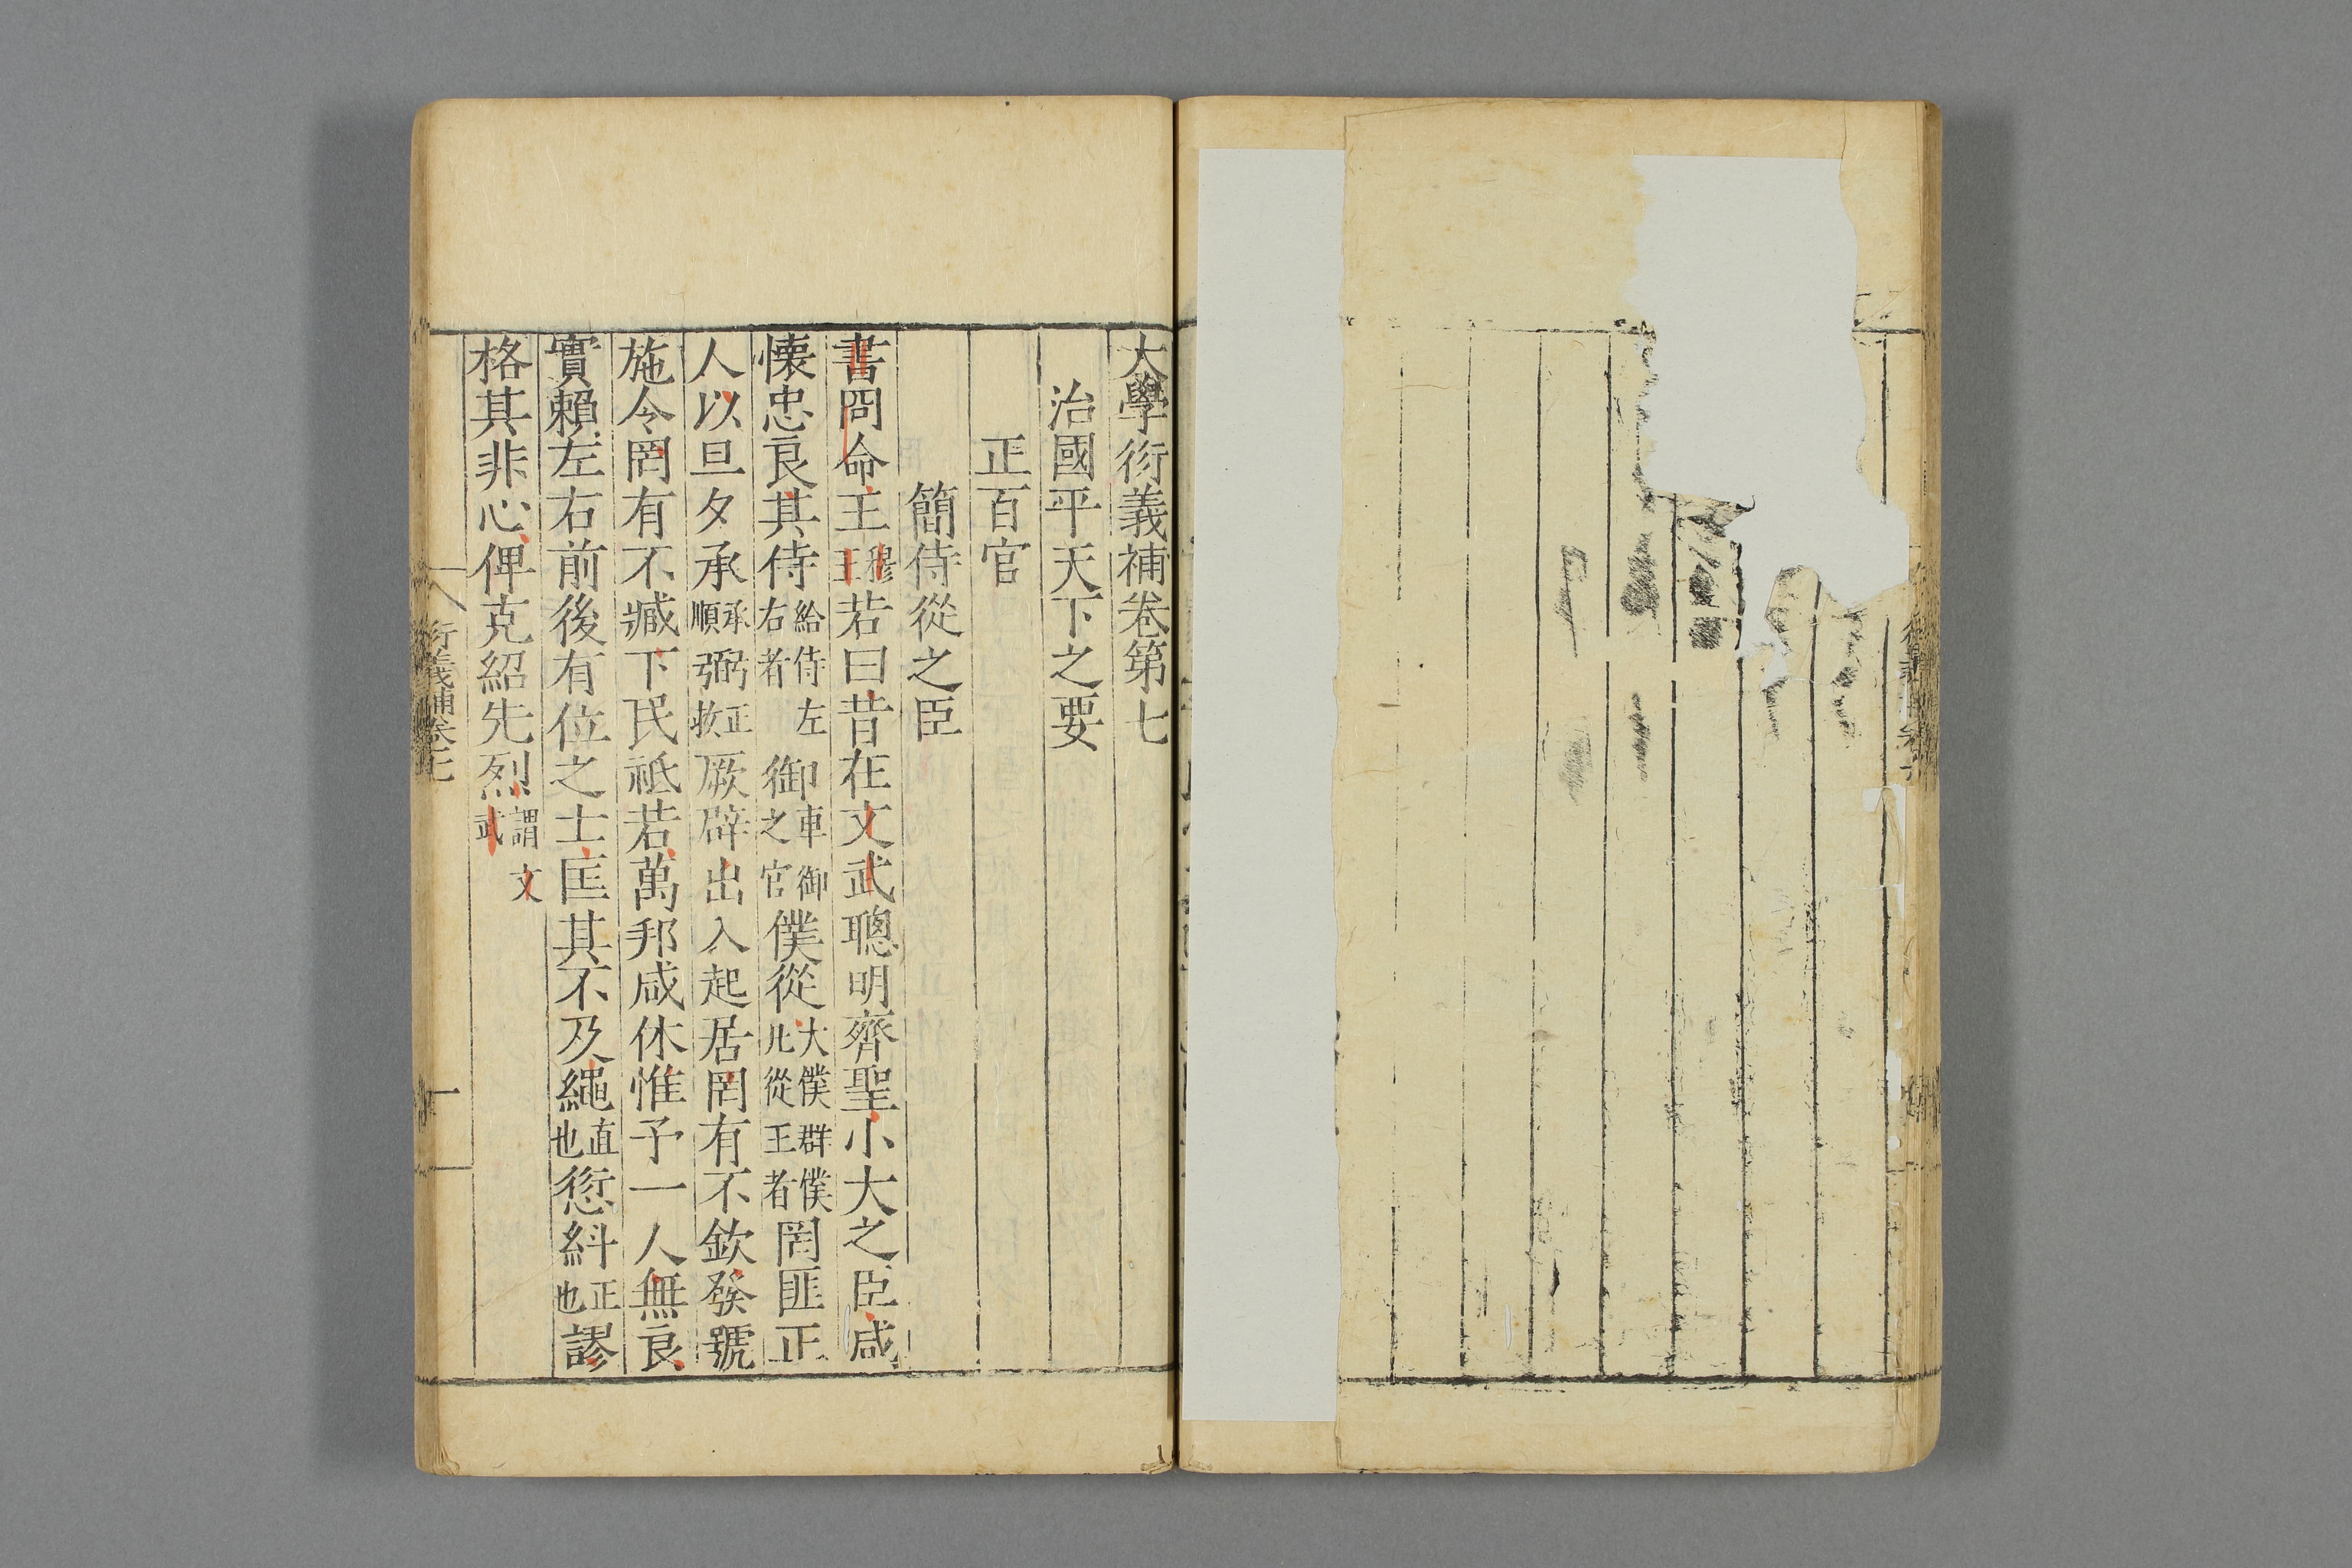 大學衍義補卷第七
治國平天下之要
正百官
簡侍從之臣
書冏命王穆王若曰昔在文武聰明齊聖小大之臣咸
懐忠良其侍給侍左右者御車御之官僕從大僕群僕凡從王者罔匪正
人以旦夕承承順弼正救厥辟出入起居罔有不欽發號
施令罔有不臧下民祗若萬邦咸休惟予一人無良
實賴左右前後有位之士匡其不及繩直也愆糾正也謬
格其非心俾克紹先烈謂文武
衍義補卷七
一